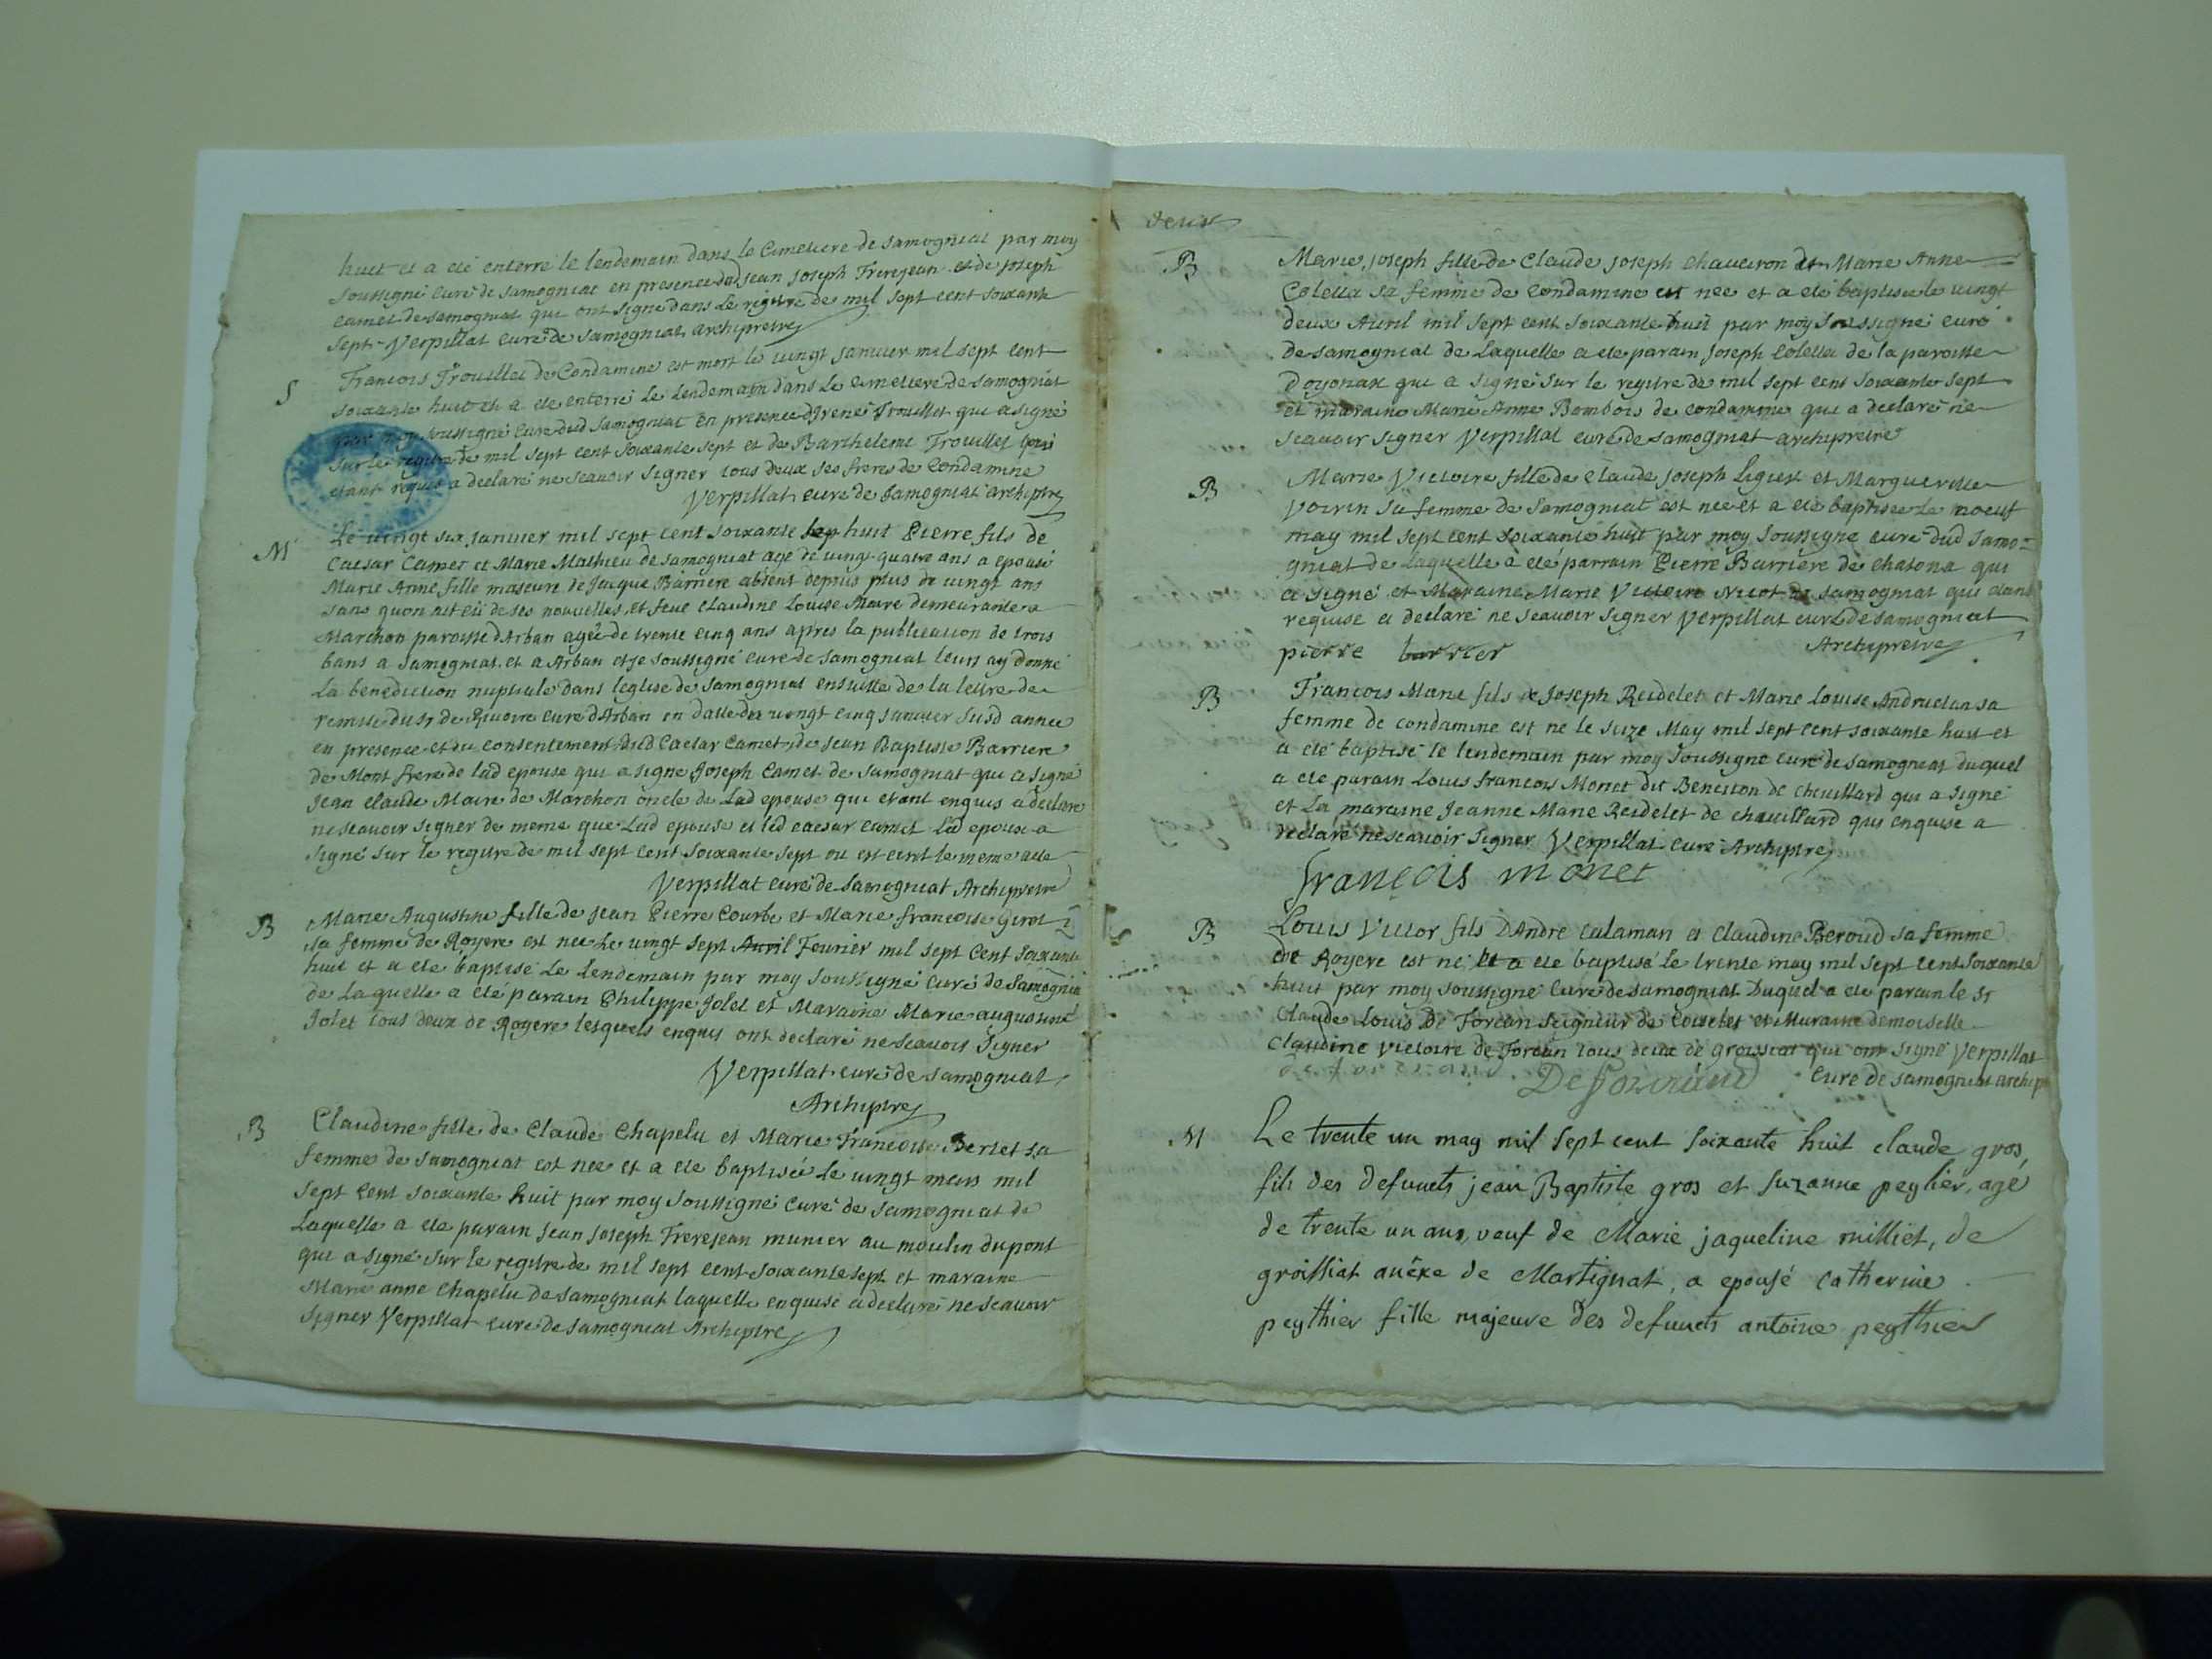 huit et a eté enterré le lendemain dans le Cimetiere de Samogniat par moy
soussigné Curé de Samogniat en presence de Jean Joseph Frerejean et de Joseph
Camet de Samogniat qui ont signé dans Le regitre de mil sept cent soixante
sept Verpillat Curé de Samogniat archipretre
S
Francois Trouillet de Condamine est mort le vingt janvier mil sept cent
soixante huit et a eté enterré Le Lendemain dans Le Cimetiere de Samogniat
par moy soussigné Curé dud Samogniat en presence d'Irené Trouillet qui a signé
sur le regitre de mil sept cent soixante sept et de Barthelemi Trouillet qui
etant requis a declaré ne scavoir signer tous deux ses freres de Condamine
Verpillat curé de Samogniat archiptre
M
Le vingt six janvier mil sept cent soixante sep huit Pierre fils de
Caesar Camet et Marie Mathieu de Samogniat agé de vingt quatre ans a epousé
Marie Anne fille majeure de Jacque Barriere absent depuis plus de vingt ans
sans quon ait eü de ses nouvelles, et feue Claudine Louise Maire demeurante a
Marchon paroisse d'Arban agée de trente cinq ans apres la publication de trois
bans a Samogniat et a Arban et je soussigné curé de Samogniat leurs ay donné
La benediction nuptiale dans leglise de Samogniat ensuitte de la lettre de
remise du Sr de Rivoire curé d'Arban en datte du vingt cinq janvier susd année
en presence et du consentement dud Caesar Camet, de Jean Baptiste Barriere
de Mont frere de lad epouse qui a signé Joseph Camet de Samogniat qui a signé
Jean Claude Maire de Marchon oncle de Lad epouse qui etant enquis a declaré
ne scavoir signer de meme que Lad epouse et led caesar camet Led epoux a
signé sur le regitre de mil sept cent soixante sept ou est ecrit le meme acte
Verpillat curé de Samogniat Archipretre
B
Marie Augustine fille de Jean Pierre Courbe et Marie francoise Girot
sa femme de Royere est nee Le vingt sept Avril Fevrier mil sept Cent soixante
huit et a eté baptisé Le Lendemain par moy soussigné curé de Samognia
de Laquelle a eté parain Philippe Jolet et Maraine Marie augustine
Jolet tous deux de Royere lesquels enquis ont declaré ne scavoir signer
Verpillat curé de Samogniat
Archiptre
B
Claudine fille de Claude Chapelu et Marie Francoise Berlet sa
femme de Samogniat est nee et a eté baptisée Le vingt mars mil
sept cent soixante huit par moy soussigné Curé de Samogniat de
Laquelle a eté parain Jean Joseph Frerejean munier au moulin dupont
qui a signé sur Le regitre de mil sept cent soixante sept et maraine
Marie anne Chapelu de Samogniat laquelle enquise a declaré ne scavoir
signer Verpillat curé de Samogniat Archiptre
deux
B
Marie, Joseph fille de Claude Joseph Chaveiron et Marie Anne
Coletta sa femme de Condamine est nee et a eté baptisée le vingt
deux Avril mil sept cent soixante huit par moy soussigné curé
de Samogniat de Laquelle a eté parain Joseph Coletta de la paroisse
d'oyonax qui a signé sur le regitre de mil sept cent soixante sept
et maraine Marie Anne Bombois de condamine qui a declaré ne
scavoir signer Verpillat curé de Samogniat archipretre
B
Marie Victoire fille de Claude Joseph Ligiest et Marguerite
Voirin sa femme de Samogniat est nee et a eté baptisée Le noeuf
may mil sept cent soixante huit par moy soussigné curé dud Samo=
gniat de Laquelle a eté parrain Pierre Barriere de Chatona qui
a signé et Maraine Marie Victoire Nicot de Samogniat qui etant
requise a declaré ne scavoir signer Verpillat curé de Samogniat
Archipretre
pierre barrier
B
Francois Marie fils de Joseph Reidelet et Marie Louise Andruetan sa
femme de condamine est né le seize May mil sept cent soixante huit et
a eté baptisé le lendemain par moy soussigné curé de Samogniat duquel
a eté parain Louis francois Monet dit Beneiton de chevillard qui a signé
et La maraine Jeanne Marie Reidelet de chevillard qui enquise a
declaré ne scavoir signer Verpillat curé Archiptre
françois monet
B
Louis Victor fils D'André Calaman et Claudine Beroud sa femme
de Royere est né et a eté baptisé Le trente may mil sept cent soixante
huit par moy soussigné Curé de Samogniat Duquel a eté parain le Sr
Claude Louis De Forcan Seigneur de Coiselet et Maraine demoiselle
Claudine Victoire de Forcan tous deux de groissiat qui ont signé Verpillat
Curé de Samogniat archip
M
Le trente un may mil sept cent soixante huit claude gros,
fils des defunts jean Baptiste gros et suzanne peylier, agé
de trente un ans, veuf de Marie jaqueline milliet, de
groissiat anêxe de Martignat, a epousé catherine
peythier fille majeure des defunts antoine peythier